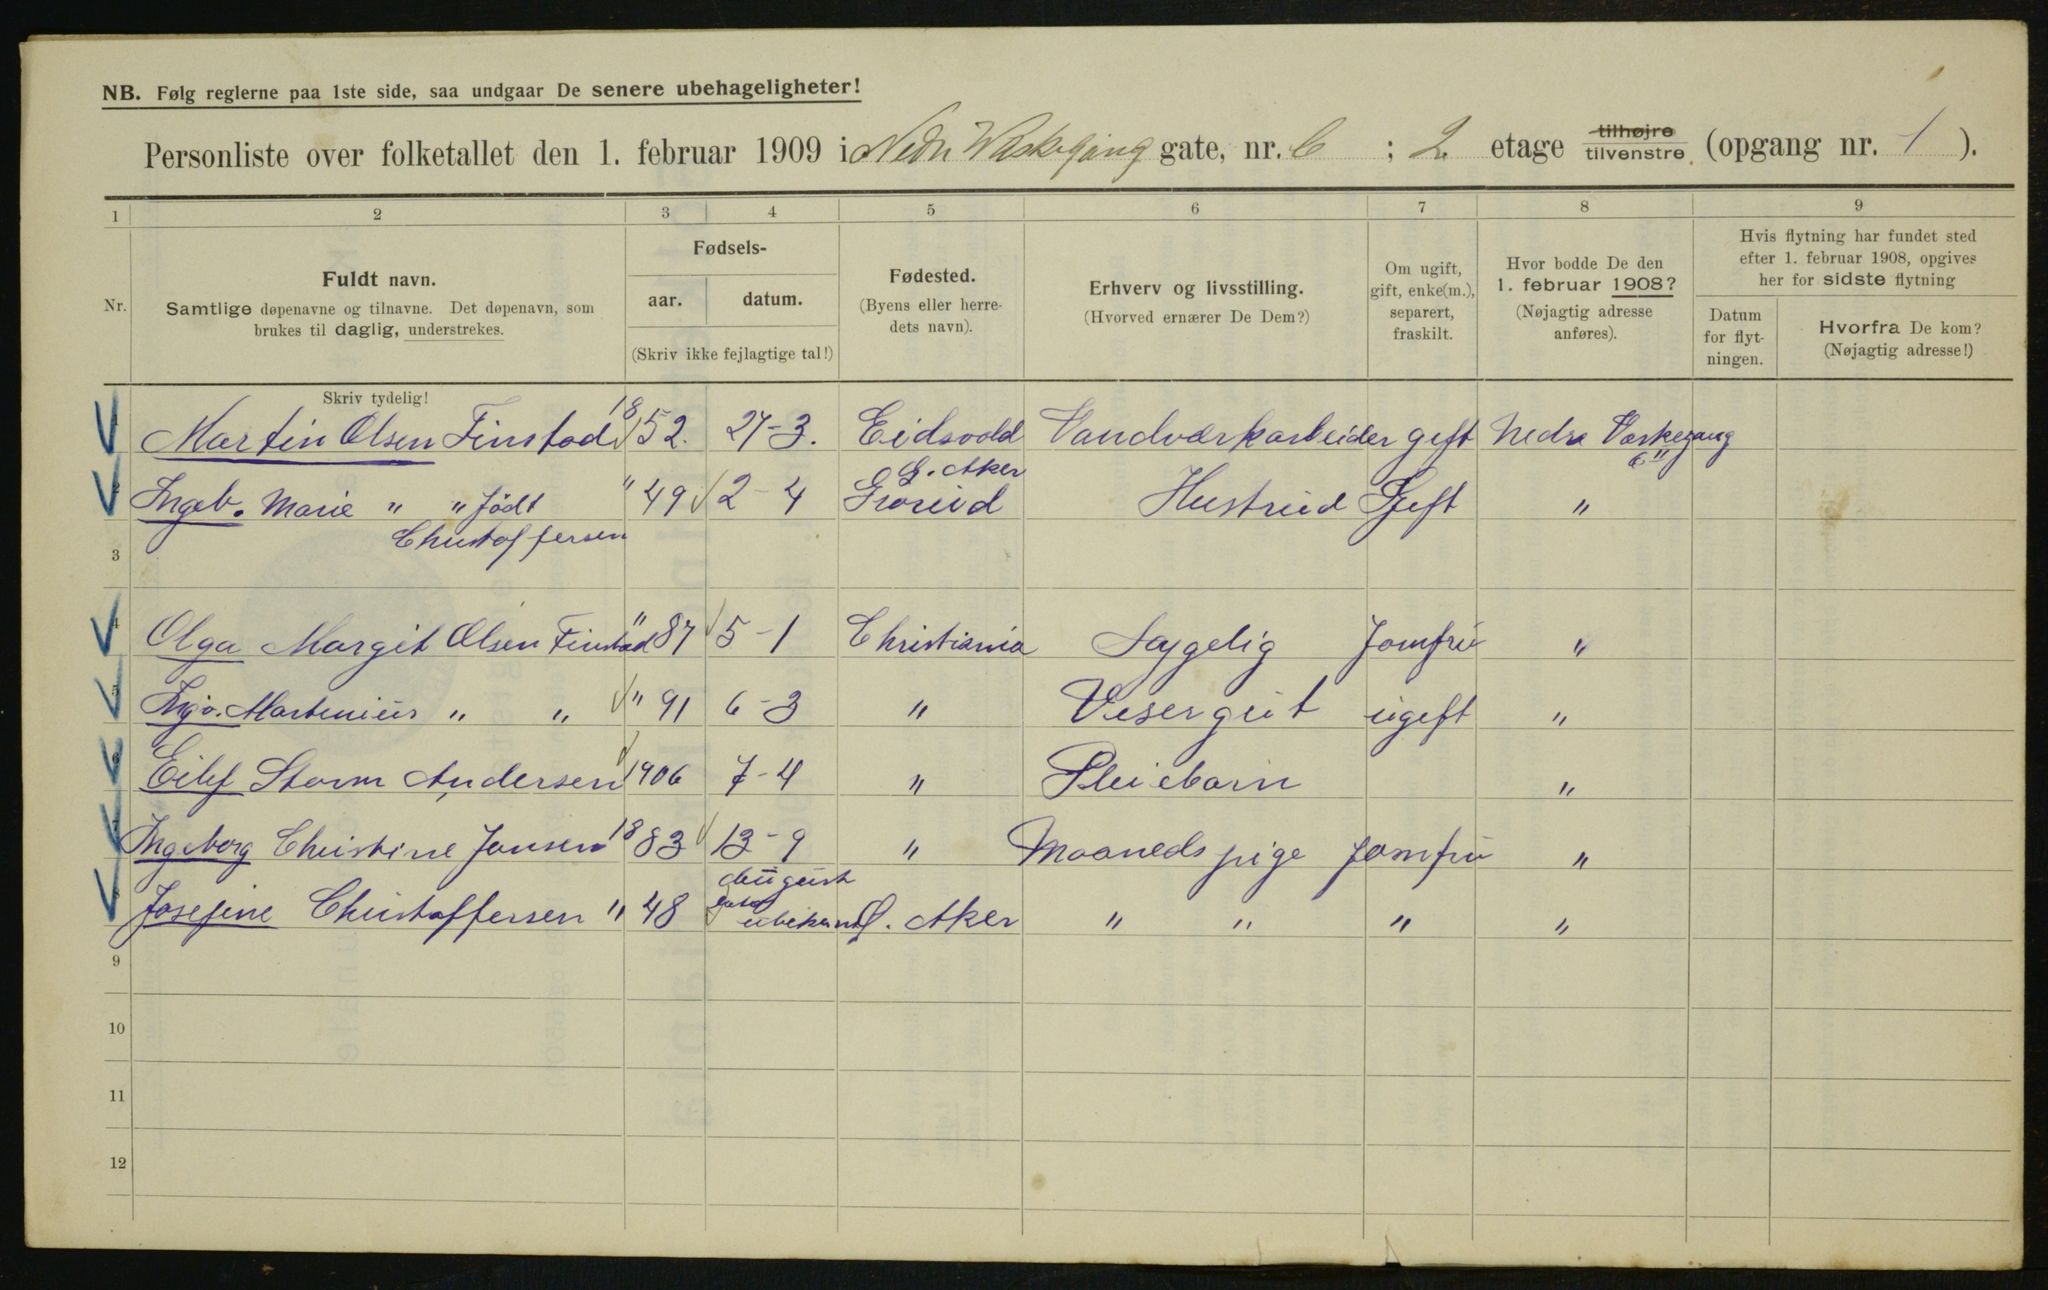 NB. Følg reglerne paa 1ste side, saa undgaar De senere ubehageligheter!
Personliste over folketallet den 1. februar 1909 i Nedr Vaskegang gate, nr. 6 ; 2 etage tilhøjre tilvenstre (opgang nr. 1 ).
1 2 3 4 5 6 7 8 9
Nr.
Fuldt navn.
Samtlige døpenavne og tilnavne. Det døpenavn, som
brukes til daglig, understrekes.
Fødsels-
aar. datum.
(Skriv ikke fejlagtige tal!)
Fødested.
(Byens eller herre-
dets navn).
Erhverv og livsstilling.
(Hvorved ernærer De Dem?)
Om ugift,
gift, enke(m.),
separert,
fraskilt.
Hvor bodde De den
1. februar 1908?
(Nøjagtig adresse
anføres).
Hvis flytning har fundet sted
efter 1. februar 1908, opgives
her for sidste flytning
Datum
for flyt-
ningen.
Hvorfra De kom?
(Nøjagtig adresse!)
Skriv tydelig!
1 Martin Olsen Finstad 1852. 27-3. Eidsvold Vandværkarbeider gift Nedre Vaskegang 6"
2 Ingeb. Marie " " født " 49 2-4 Ø. Aker Grorud Hustrud Gift "
3 Christoffersen
4 Olga Margit Olsen Finstad " 87 5-1 Christiania Sygelig Jomfru "
5 Ingv. Martinius " " " 91 6-3 " Visergut ugift "
6 Eilif Storm Andersen 1906 7-4 " Pleiebarn "
7 Ingeborg Christine Jansen 1883 13-9 " Maanedspige Jomfru "
8 Josefine Christoffersen " 48 August ubekendt Ø. Aker " " " "
9
10
11
12